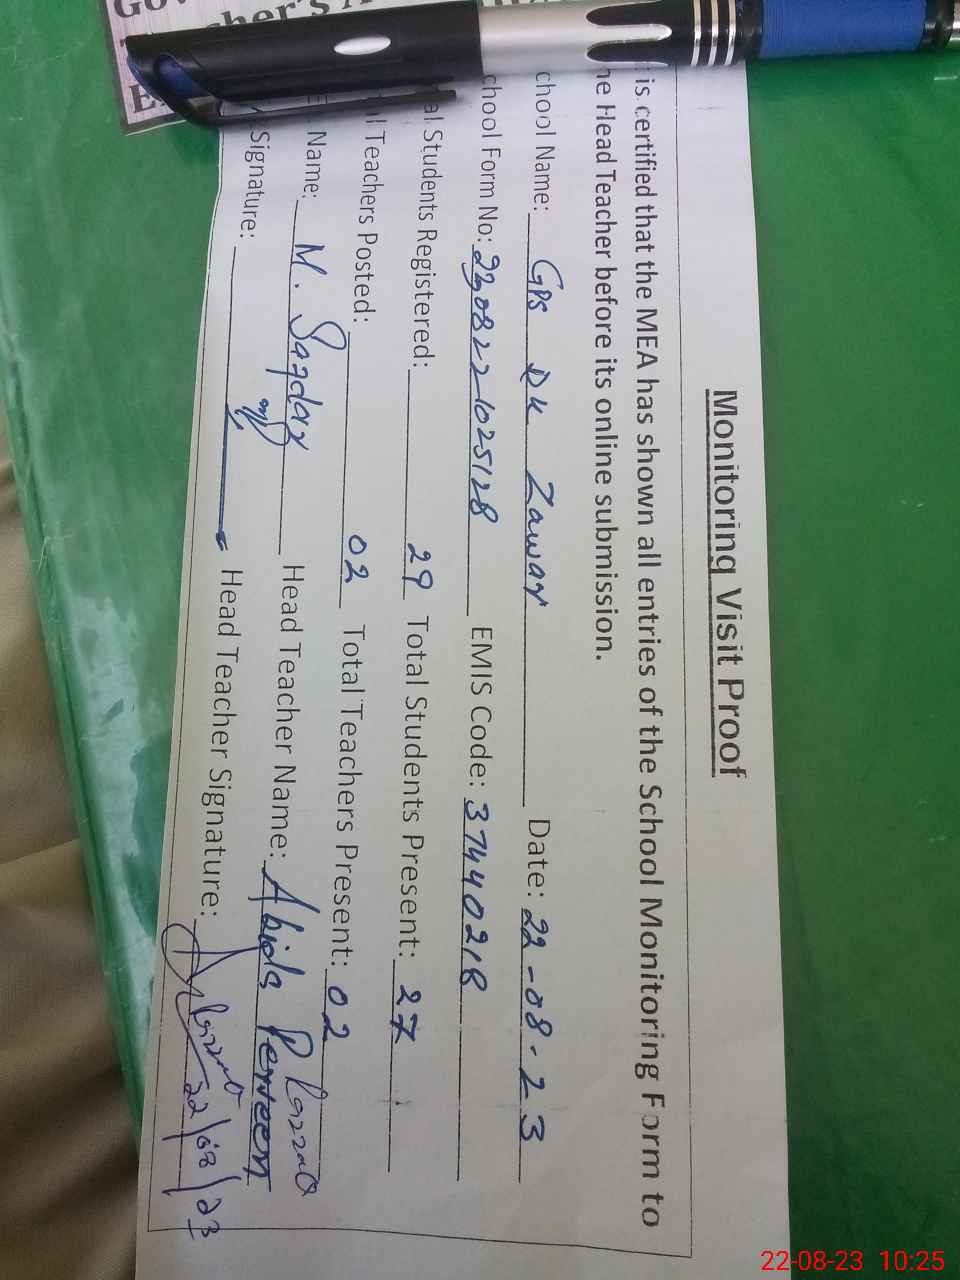 Monitoring Visit Proof
is certified that the MEA has shown all entries of the School Monitoring Form to
he Head Teacher before its online submission.
chool Name: GPS DK Zawar Date: 22-08-23
chool Form No: 2208221025128 EMIS Code: 37440218
al Students Registered: 29 Total Students Present: 27
l Teachers Posted: 02 Total Teachers Present: 02
Name: M. Safdar Head Teacher Name: Abida Perveen
Signature: Head Teacher Signature: 22/08/23
22-08-23 10:25